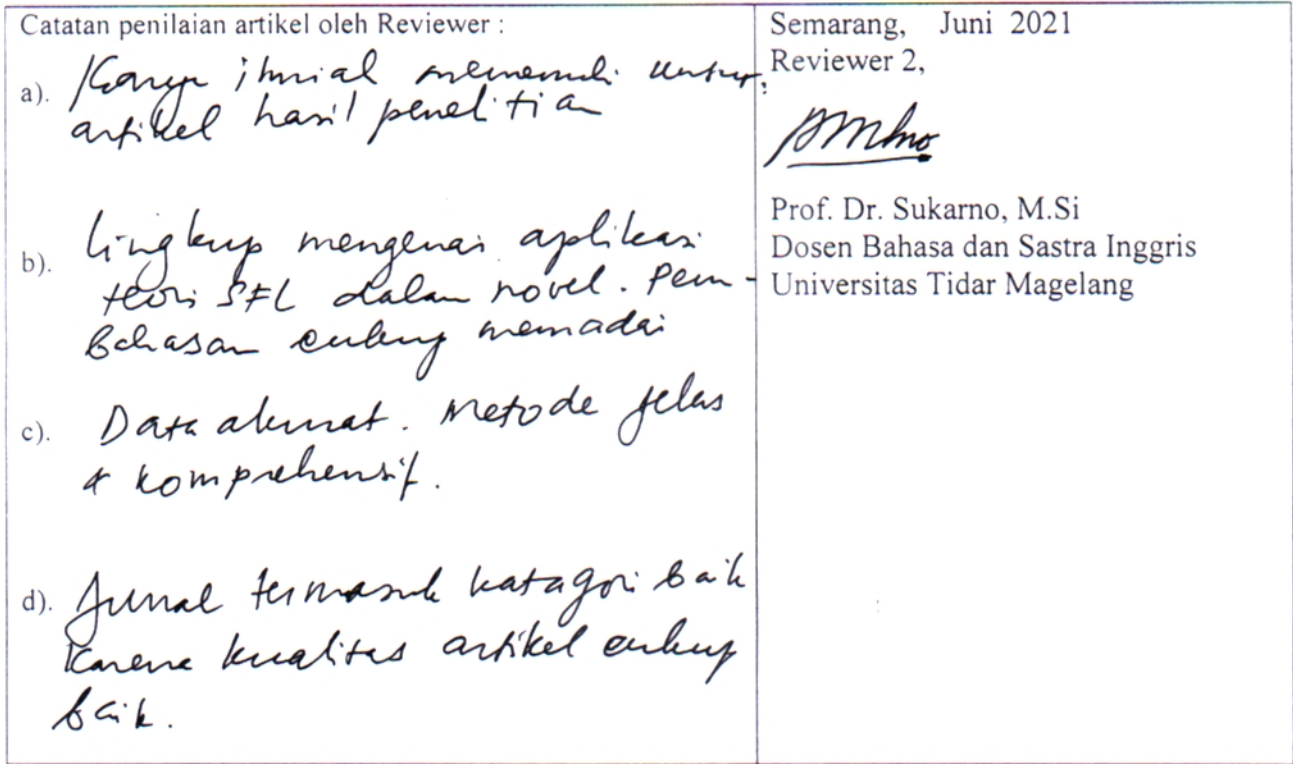 Catatan penilaian artikel oleh Reviewer :
a). Karya ilmial memenuhi unsur:
artikel hasil penelitian
b). lingkup mengenai aplikasi
teori SFL dalam novel. Pem-
bahasan cukup memadai
c). Data akurat. Metode jelas
& komprehensif.
d). Jurnal termasuk katagori baik
karena kualitas artikel cukup
baik.
Semarang, Juni 2021
Reviewer 2,
Prof. Dr. Sukarno, M.Si
Dosen Bahasa dan Sastra Inggris
Universitas Tidar Magelang